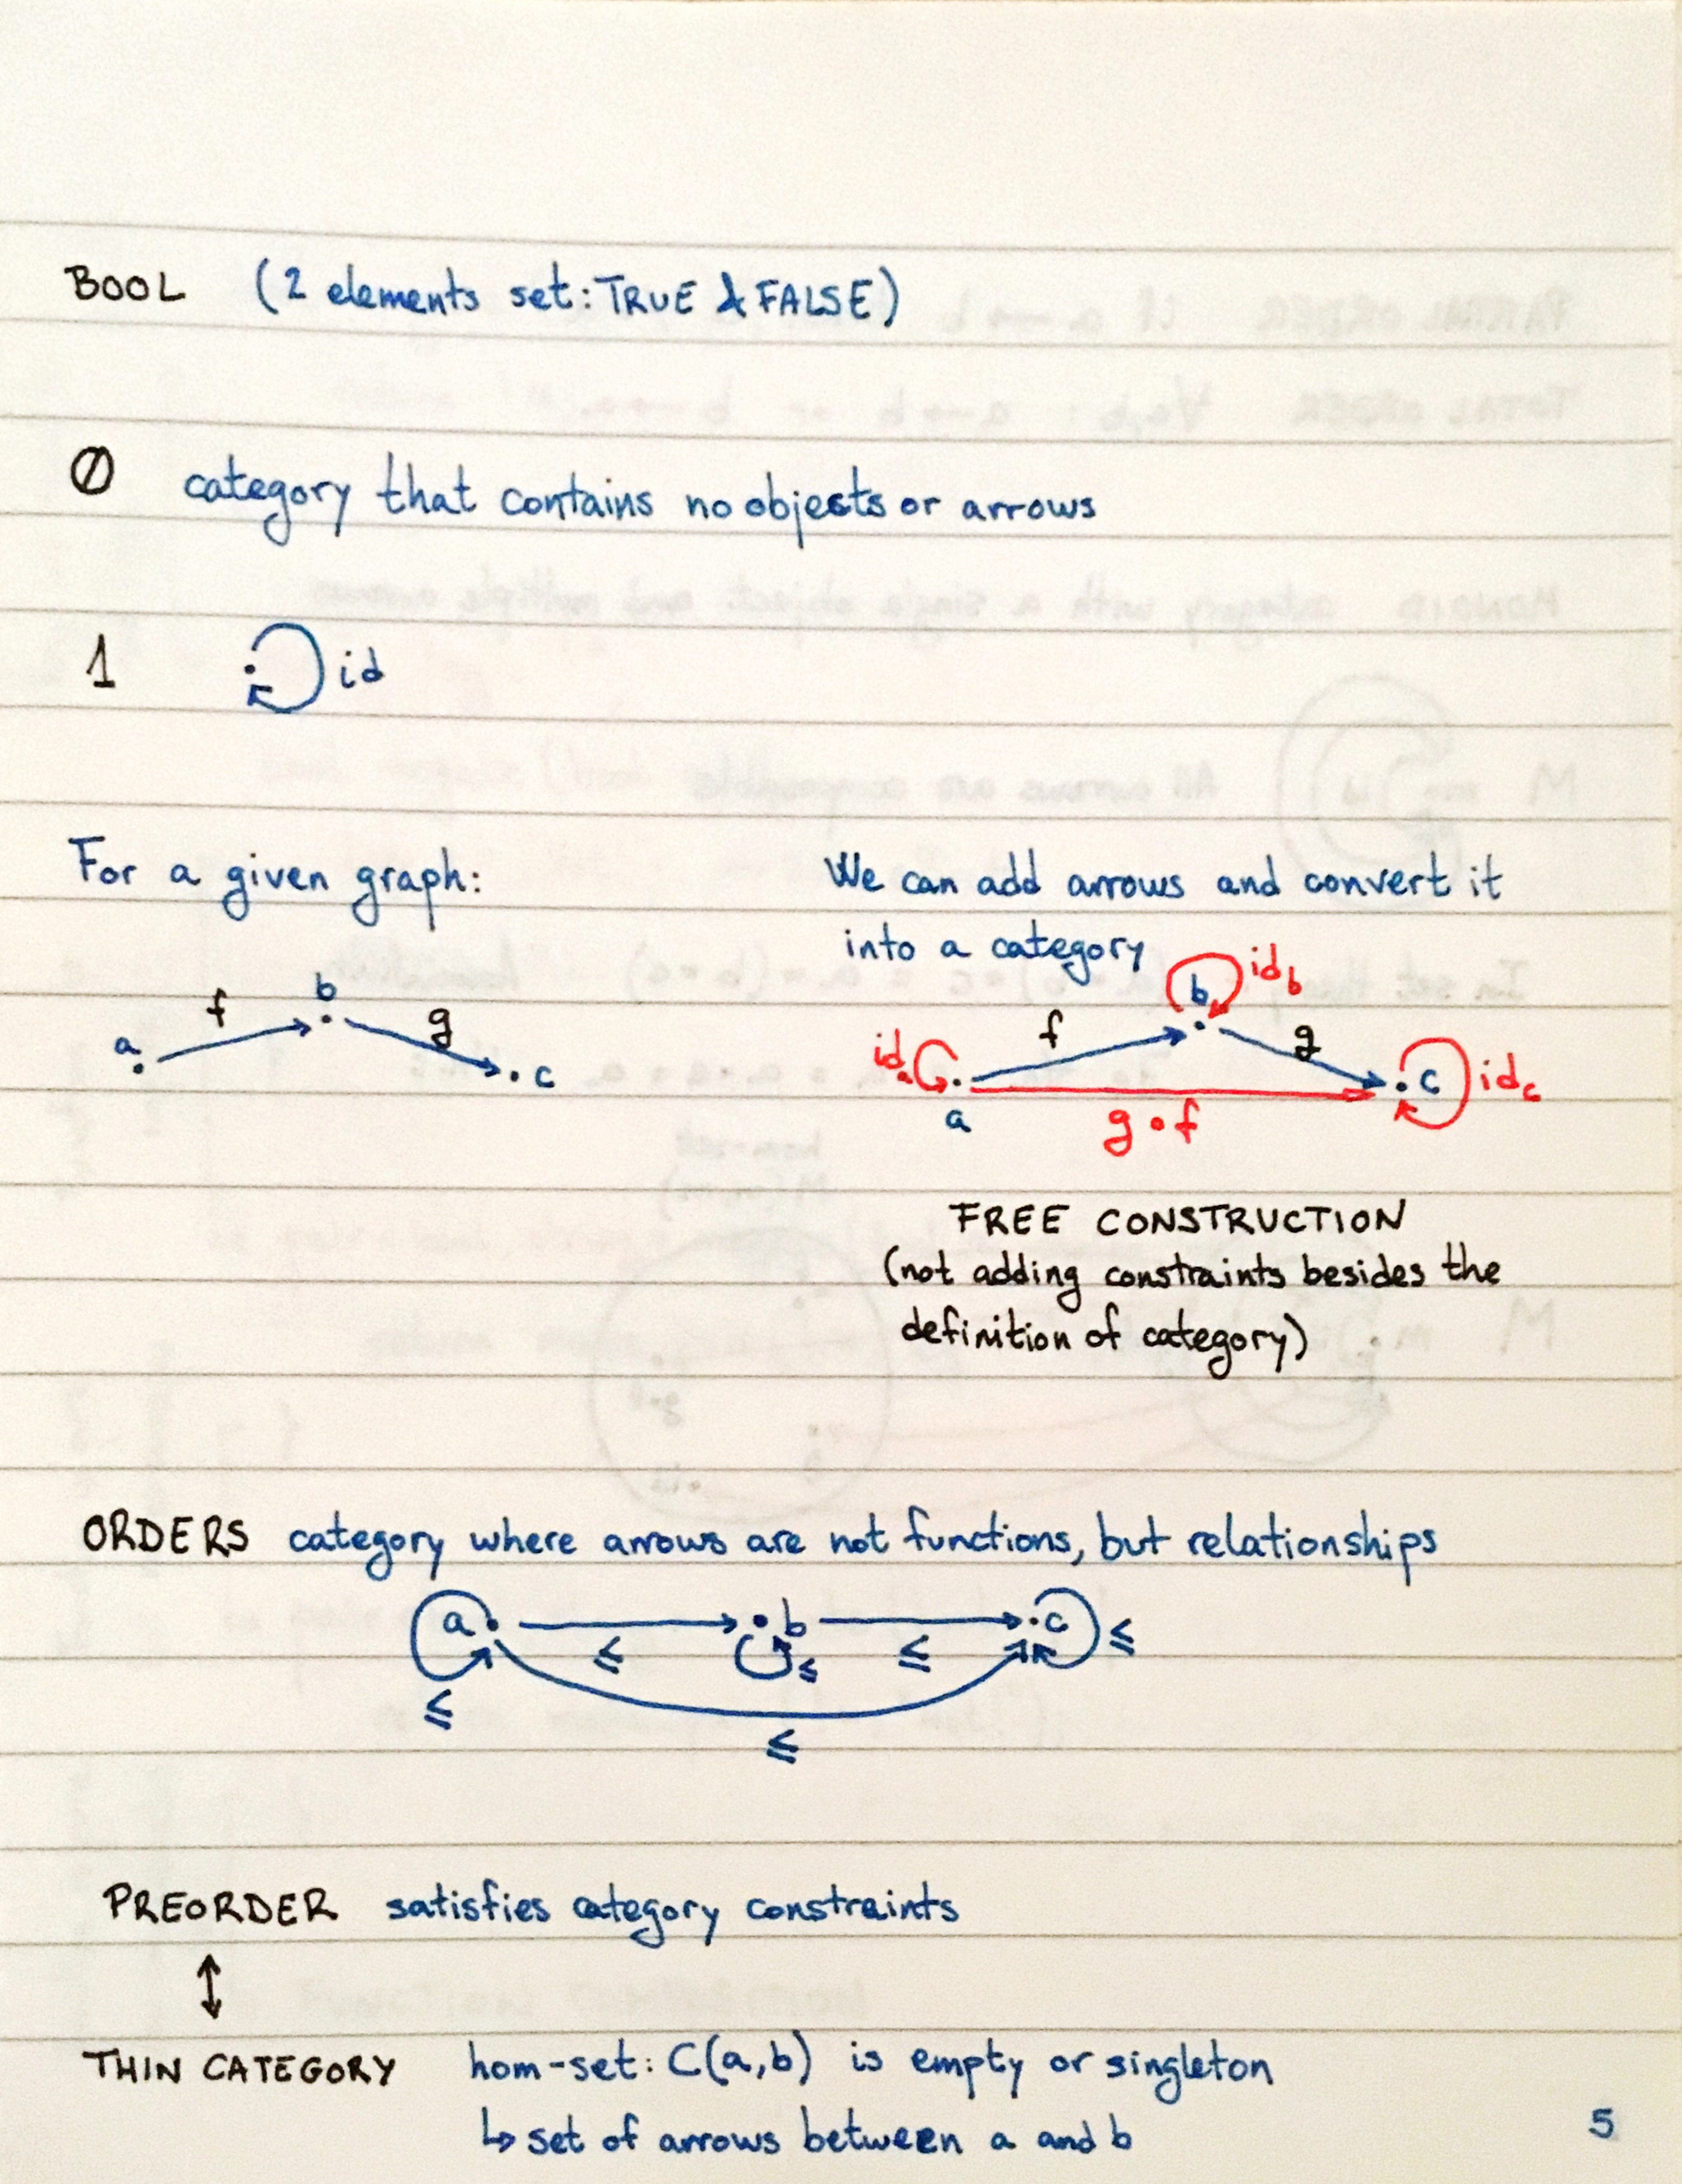 BOOL (2 elements set: TRUE & FALSE)
∅ category that contains no objects or arrows
1 id
For a given graph:
a f b g c
We can add arrows and convert it
into a category
id_a a f b id_b g c id_c
g∘f
FREE CONSTRUCTION
(not adding constraints besides the
definition of category)
ORDERS category where arrows are not functions, but relationships
a b c ≤
≤ ≤ ≤
≤
≤
PREORDER satisfies category constraints
↕
THIN CATEGORY hom-set: C(a,b) is empty or singleton
↳ set of arrows between a and b
5